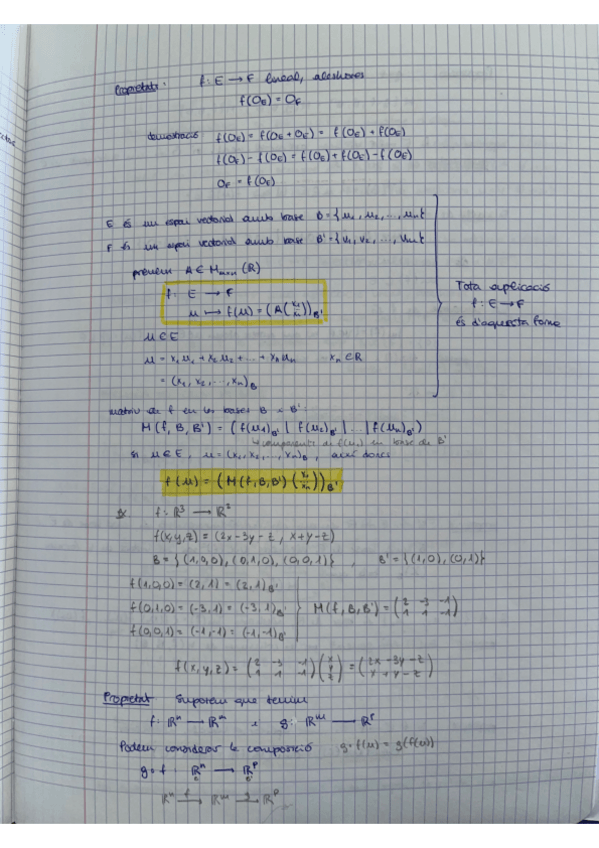 Propietat: f: E → F lineal, aleshores
f(0E) = 0F
demostració f(0E) = f(0E + 0E) = f(0E) + f(0E)
f(0E) - f(0E) = f(0E) + f(0E) - f(0E)
0F = f(0E)
E és un espai vectorial amb base B = {u1, u2, ..., un}
F és un espai vectorial amb base B' = {v1, v2, ..., vm}
prenem A ∈ Mm×n (R)
f: E → F
u ↦ f(u) = (A(x1 xn))B'
Tota aplicació
f: E → F
és d'aquesta forma
u ∈ E
u = x1u1 + x2u2 + ... + xnun xn ∈ R
= (x1, x2, ..., xn)B
matriu de f en les bases B i B':
M(f, B, B') = (f(u1)B' | f(u2)B' | ... | f(un)B')
components de f(u1) en base de B'
si u ∈ E, u = (x1, x2, ..., xn)B, així doncs
f(u) = (M(f, B, B') (x1 xn))B'
Ex f: R³ → R²
f(x,y,z) = (2x-3y-z, x+y-z)
B = {(1,0,0), (0,1,0), (0,0,1)}, B' = {(1,0), (0,1)}
f(1,0,0) = (2,1) = (2,1)B'
f(0,1,0) = (-3,1) = (-3,1)B' M(f, B, B') = (2 -3 -1 / 1 1 -1)
f(0,0,1) = (-1,-1) = (-1,-1)B'
f(x,y,z) = (2 -3 -1 / 1 1 -1)(x y z) = (2x-3y-z / x+y-z)
Propietat Suposem que tenim
f: Rⁿ → Rᵐ i g: Rᵐ → Rᵖ
Podem considerar la composició g∘f(u) = g(f(u))
g∘f: Rⁿ → Rᵖ
Rⁿ f→ Rᵐ g→ Rᵖ